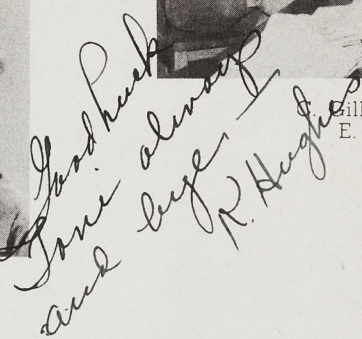 Good luck
Toni always
and bye.
R. Hughes
C. Gill
E.